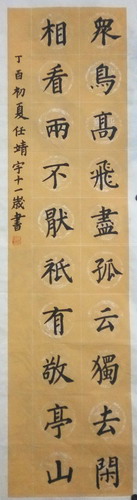 眾鳥高飛盡孤云獨去閑
相看兩不厭祇有敬亭山
丁酉初夏任靖宇十一歲書